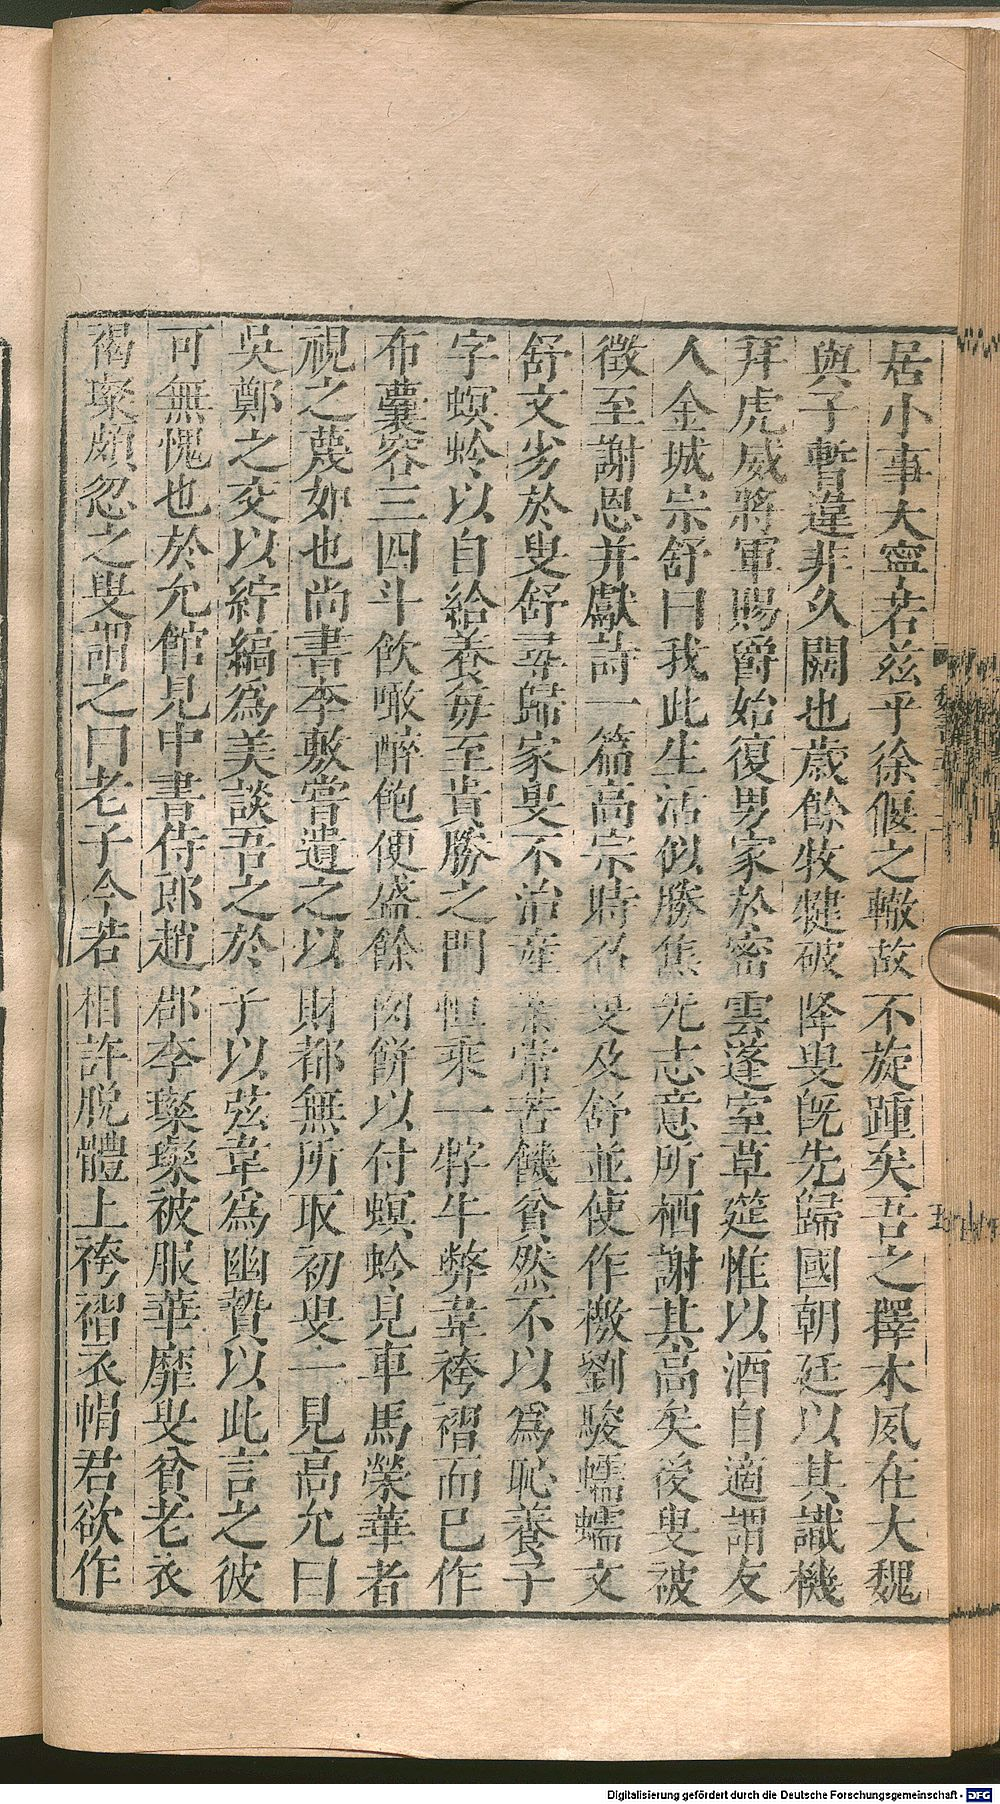 居小事大寧若茲乎徐偃之轍故不旋踵矣吾之擇木夙在大魏
與子暫違非久闊也歲餘牧犍破降叟旣先歸國朝廷以其識機
拜虎威將軍賜爵始復男家於密雲蓬室草筵惟以酒自適謂友
人金城宗舒曰我此生活似勝焦先志意所栖謝其高矣後叟被
徵至謝恩并獻詩一篇高宗時召叟及舒並使作檄劉駿蠕蠕文
舒文劣於叟舒尋歸家叟不治產業常苦飢貧然不以爲恥養子
字螟蛉以自給養每至貴勝之門恒乘一牸牛弊韋袴褶而已作
布囊容三四斗飲噉醉飽便盛餘肉餅以付螟蛉見車馬榮華者
視之蔑如也尚書李敷嘗遺之以財都無所取初叟一見高允曰
吳鄭之交以紵縞爲美談吾之於子以弦韋爲幽贄以此言之彼
可無愧也於允館見中書侍郎趙郡李璨璨被服華靡叟貧老衣
褐璨頗忽之叟謂之曰老子今若相許脫體上袴褶衣帽君欲作
Digitalisierung gefördert durch die Deutsche Forschungsgemeinschaft - DFG